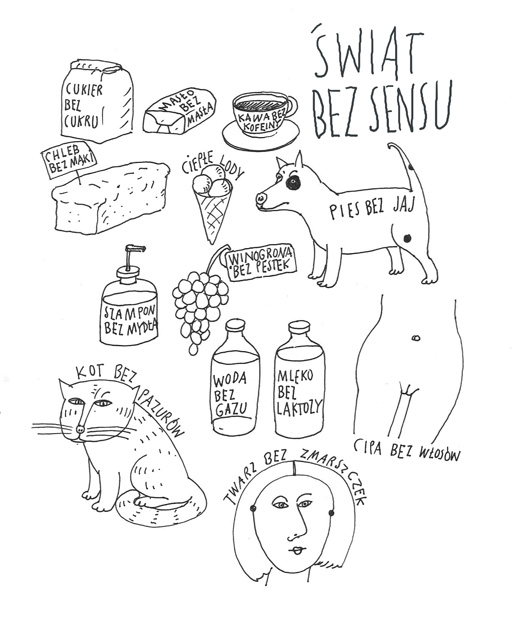 ŚWIAT
BEZ SENSU
CUKIER
BEZ
CUKRU
MASŁO
BEZ
MASŁA
KAWA BEZ
KOFEINY
CHLEB
BEZ MĄKI
CIEPŁE LODY
PIES BEZ JAJ
WINOGRONA
BEZ PESTEK
SZAMPON
BEZ MYDŁA
WODA
BEZ
GAZU
MLEKO
BEZ
LAKTOZY
KOT BEZ PAZURÓW
CIPA BEZ WŁOSÓW
TWARZ BEZ ZMARSZCZEK